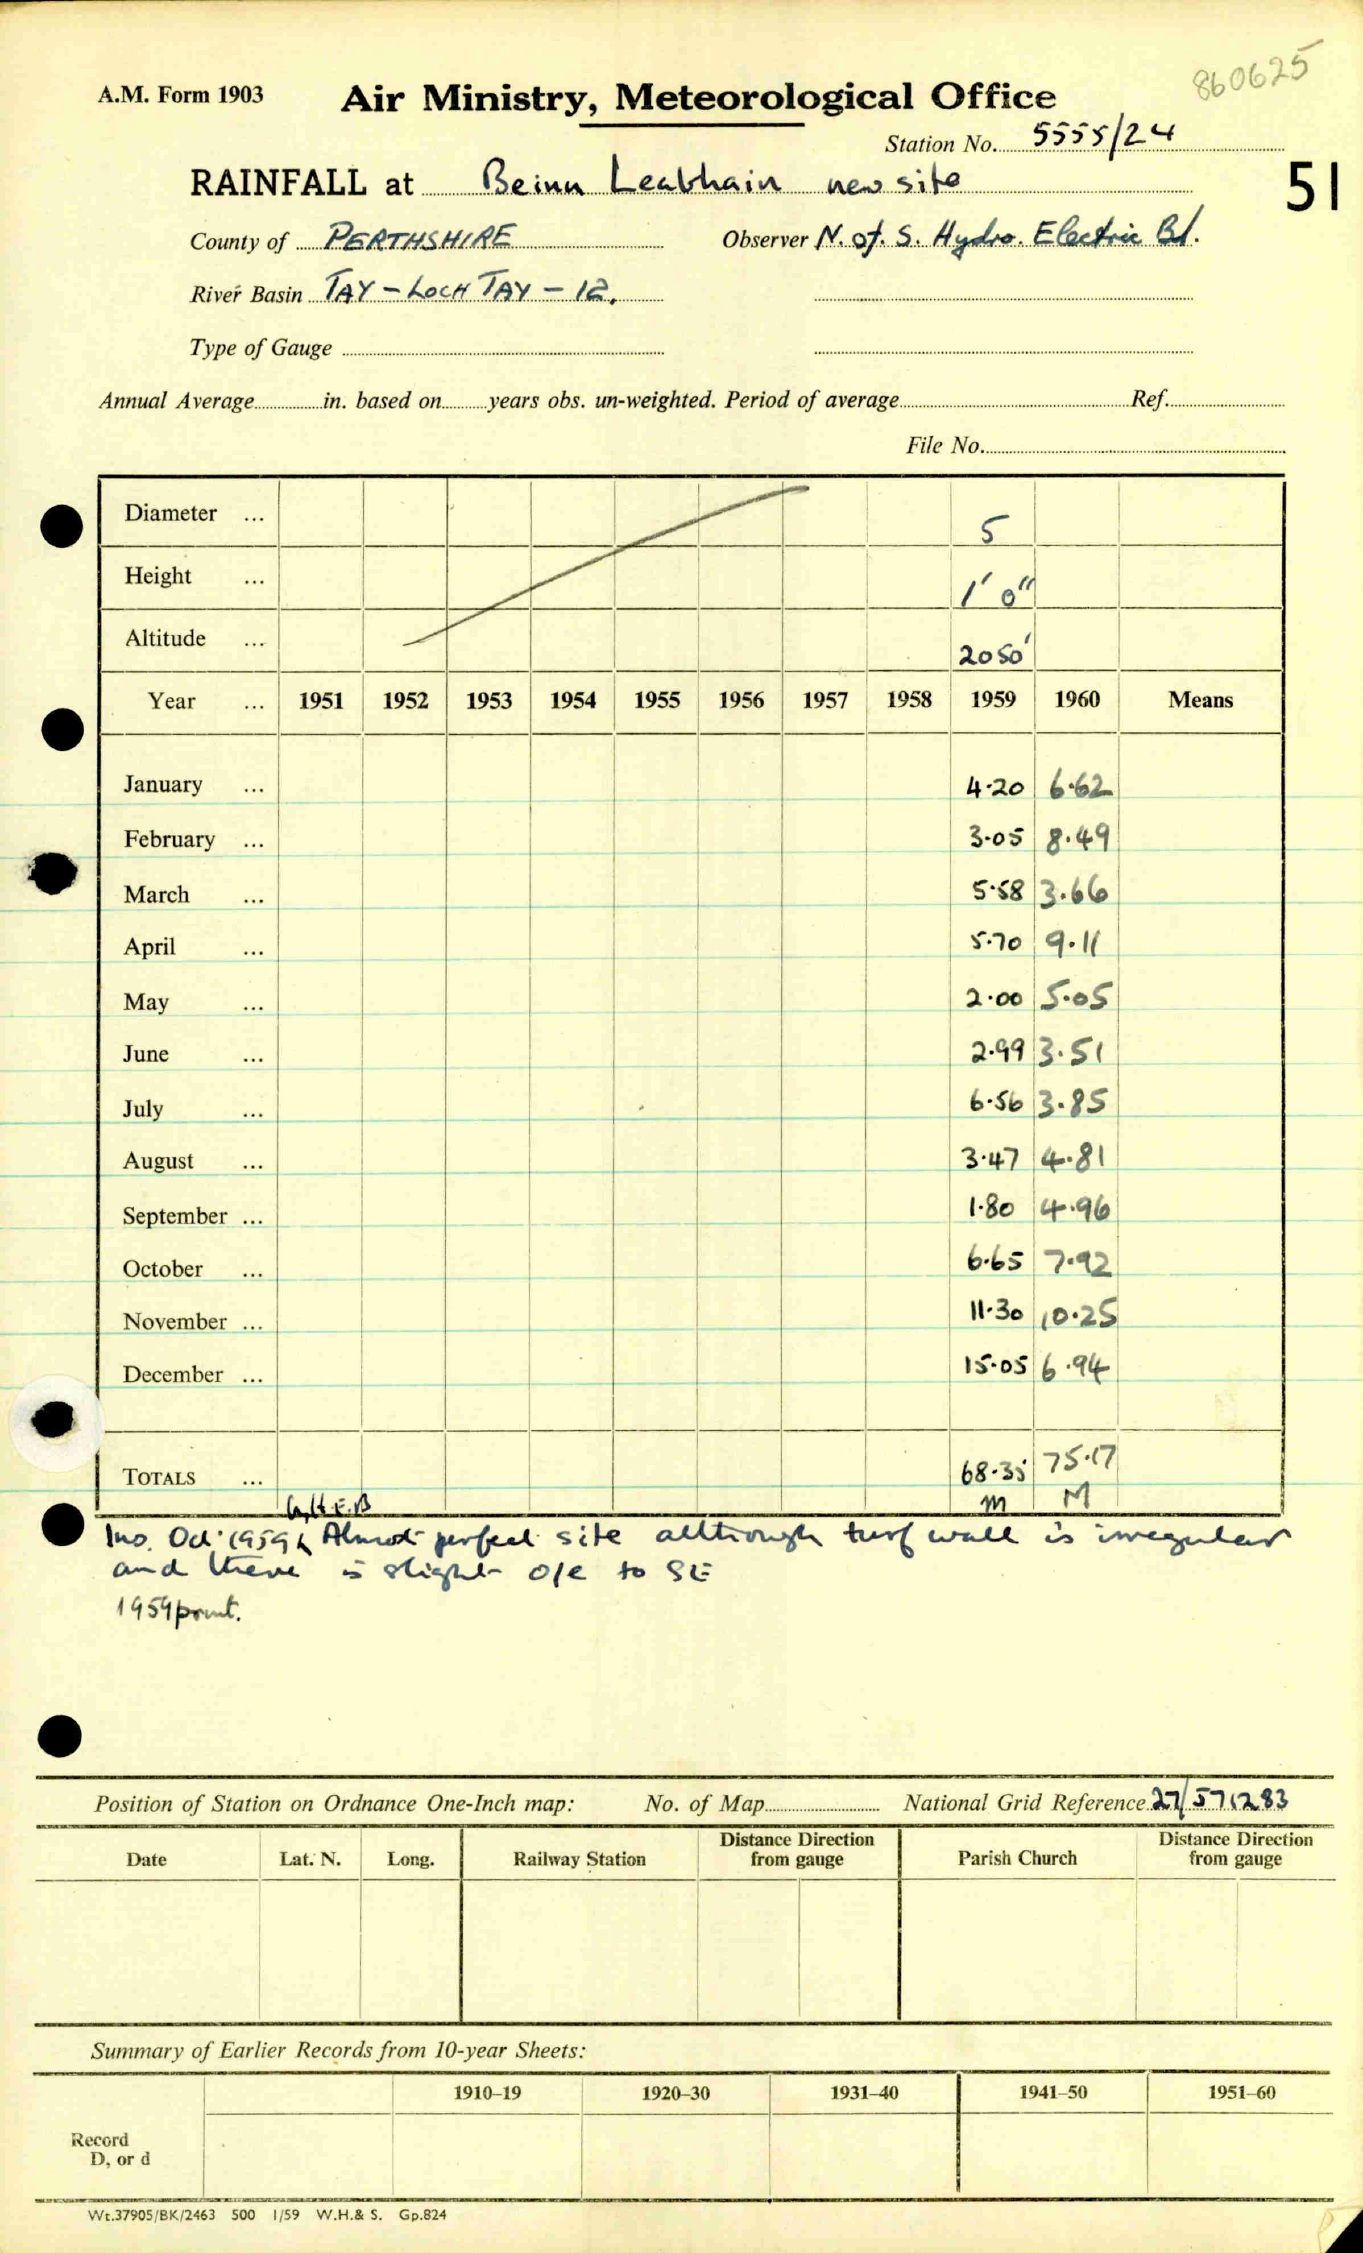 860625
A.M. Form 1903 Air Ministry, Meteorological Office
Station No. 5555/24
RAINFALL at Beinn Leabhain new site 51
County of PERTHSHIRE Observer N. of. S. Hydro. Electric Bd.
River Basin TAY - LOCH TAY - 12.
Type of Gauge
Annual Average in. based on years obs. un-weighted. Period of average Ref.
File No.
Diameter ... 5
Height ... 1' 0"
Altitude ... 2050'
Year ... 1951 1952 1953 1954 1955 1956 1957 1958 1959 1960 Means
January ... 4.20 6.62
February ... 3.05 8.49
March ... 5.58 3.66
April ... 5.70 9.11
May ... 2.00 5.05
June ... 2.99 3.51
July ... 6.56 3.85
August ... 3.47 4.81
September ... 1.80 4.96
October ... 6.65 7.92
November ... 11.30 10.25
December ... 15.05 6.94
TOTALS ... 68.35 75.17
M M
Ins. Oct 1959 Almost perfect site although turf wall is irregular
and there is slight o/e to SE
1959 print.
Position of Station on Ordnance One-Inch map: No. of Map National Grid Reference 27/571283
Date Lat. N. Long. Railway Station Distance Direction from gauge Parish Church Distance Direction from gauge
Summary of Earlier Records from 10-year Sheets:
1910–19 1920–30 1931–40 1941–50 1951–60
Record
D, or d
Wt.37905/BK/2463 500 1/59 W.H.& S. Gp.824